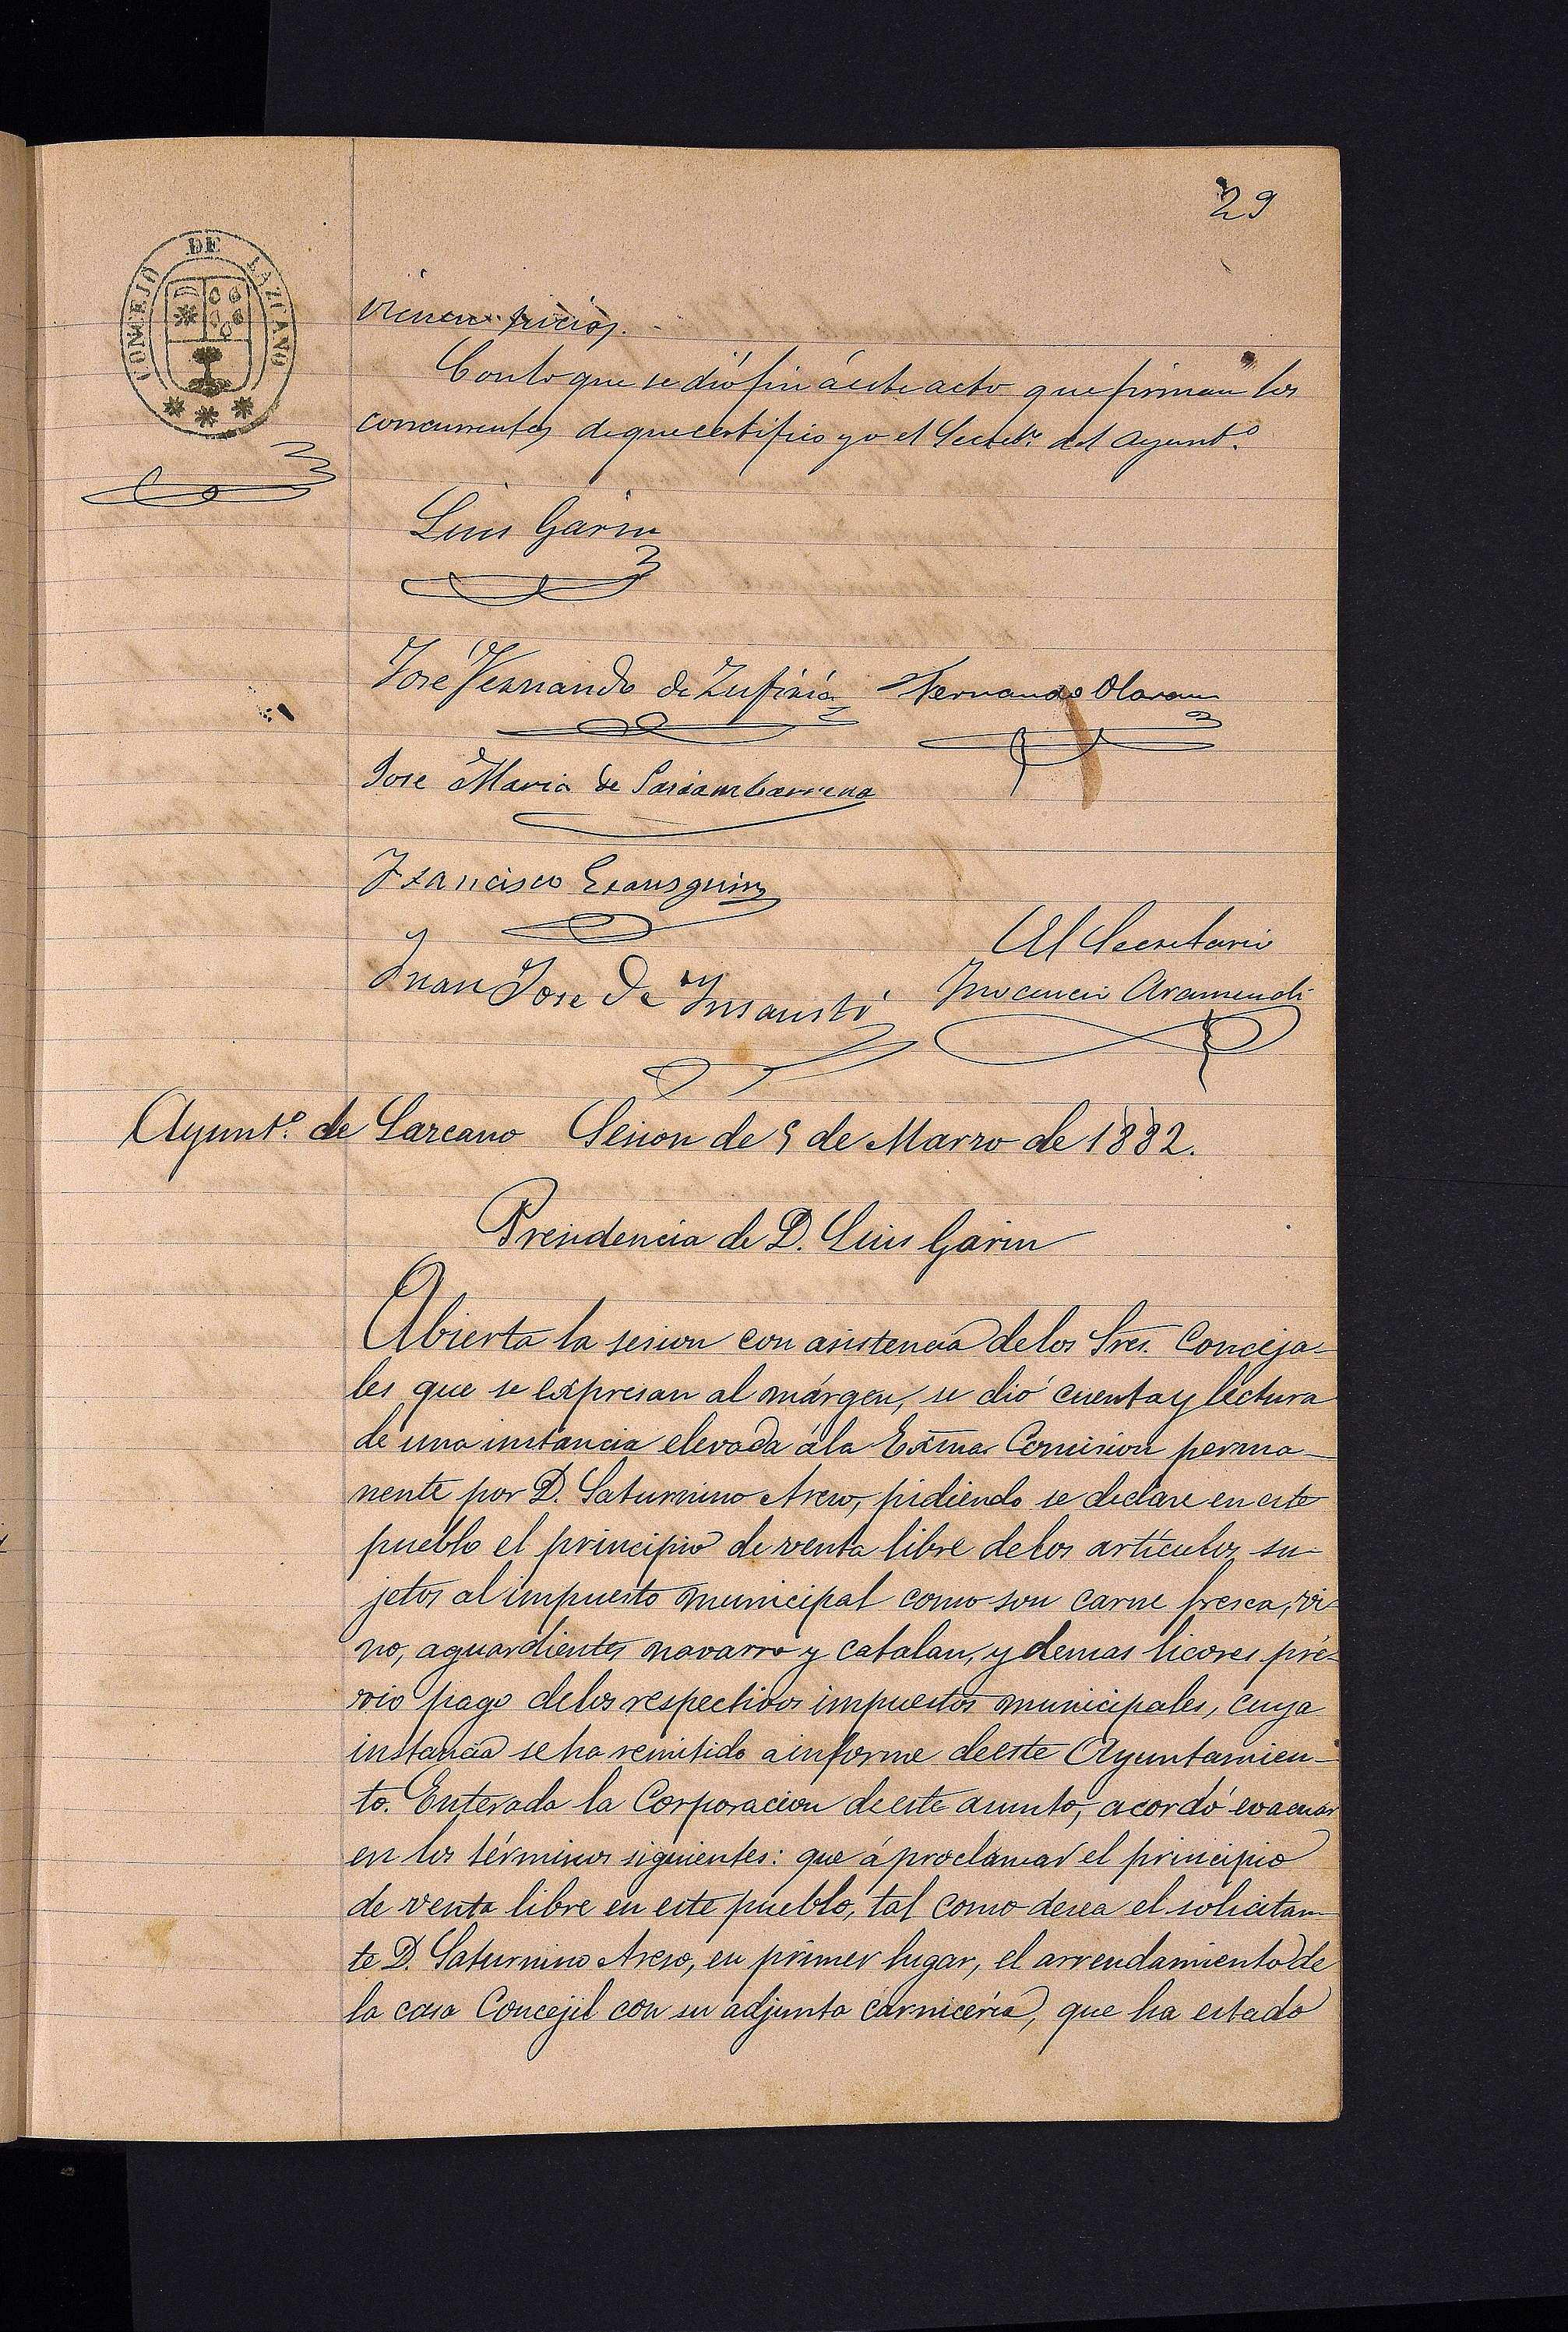 29
CONCEJO DE LAZCANO
vienen
Con lo que se dió fin á este acto que firman los
concurrentes de que certifico yo el Secret.º del Ayunt.º
Luis Garin
José Fernando de Zufiria Fernando Olaran
Jose Maria de
Francisco Exausquin
Juan Jose de Insausti
El Secretario
Inocencio Aramendi
Ayunt.º de Lazcano Sesion de 5 de Marzo de 1882.
Presidencia de D. Luis Garin
Abierta la sesion con asistencia de los Sres. Conceja-
les que se expresan al márgen, se dió cuenta y lectura
de una instancia elevada á la Exma. Comision perma-
nente por D. Saturnino Areso, pidiendo se declare en este
pueblo el principio de venta libre de los artículos su-
jetos al impuesto municipal como son carne fresca, vi-
no, aguardientes navarro y catalan, y demas licores pré-
vio pago de los respectivos impuestos municipales, cuya
instancia se ha remitido a informe de este Ayuntamien-
to. Enterada la Corporacion de este asunto, acordó evacuar
en los términos siguientes: que á proclamar el principio
de venta libre en este pueblo, tal como desea el solicitan-
te D. Saturnino Areso, en primer lugar, el arrendamiento de
la casa Concejil con su adjunta carnicería, que ha estado